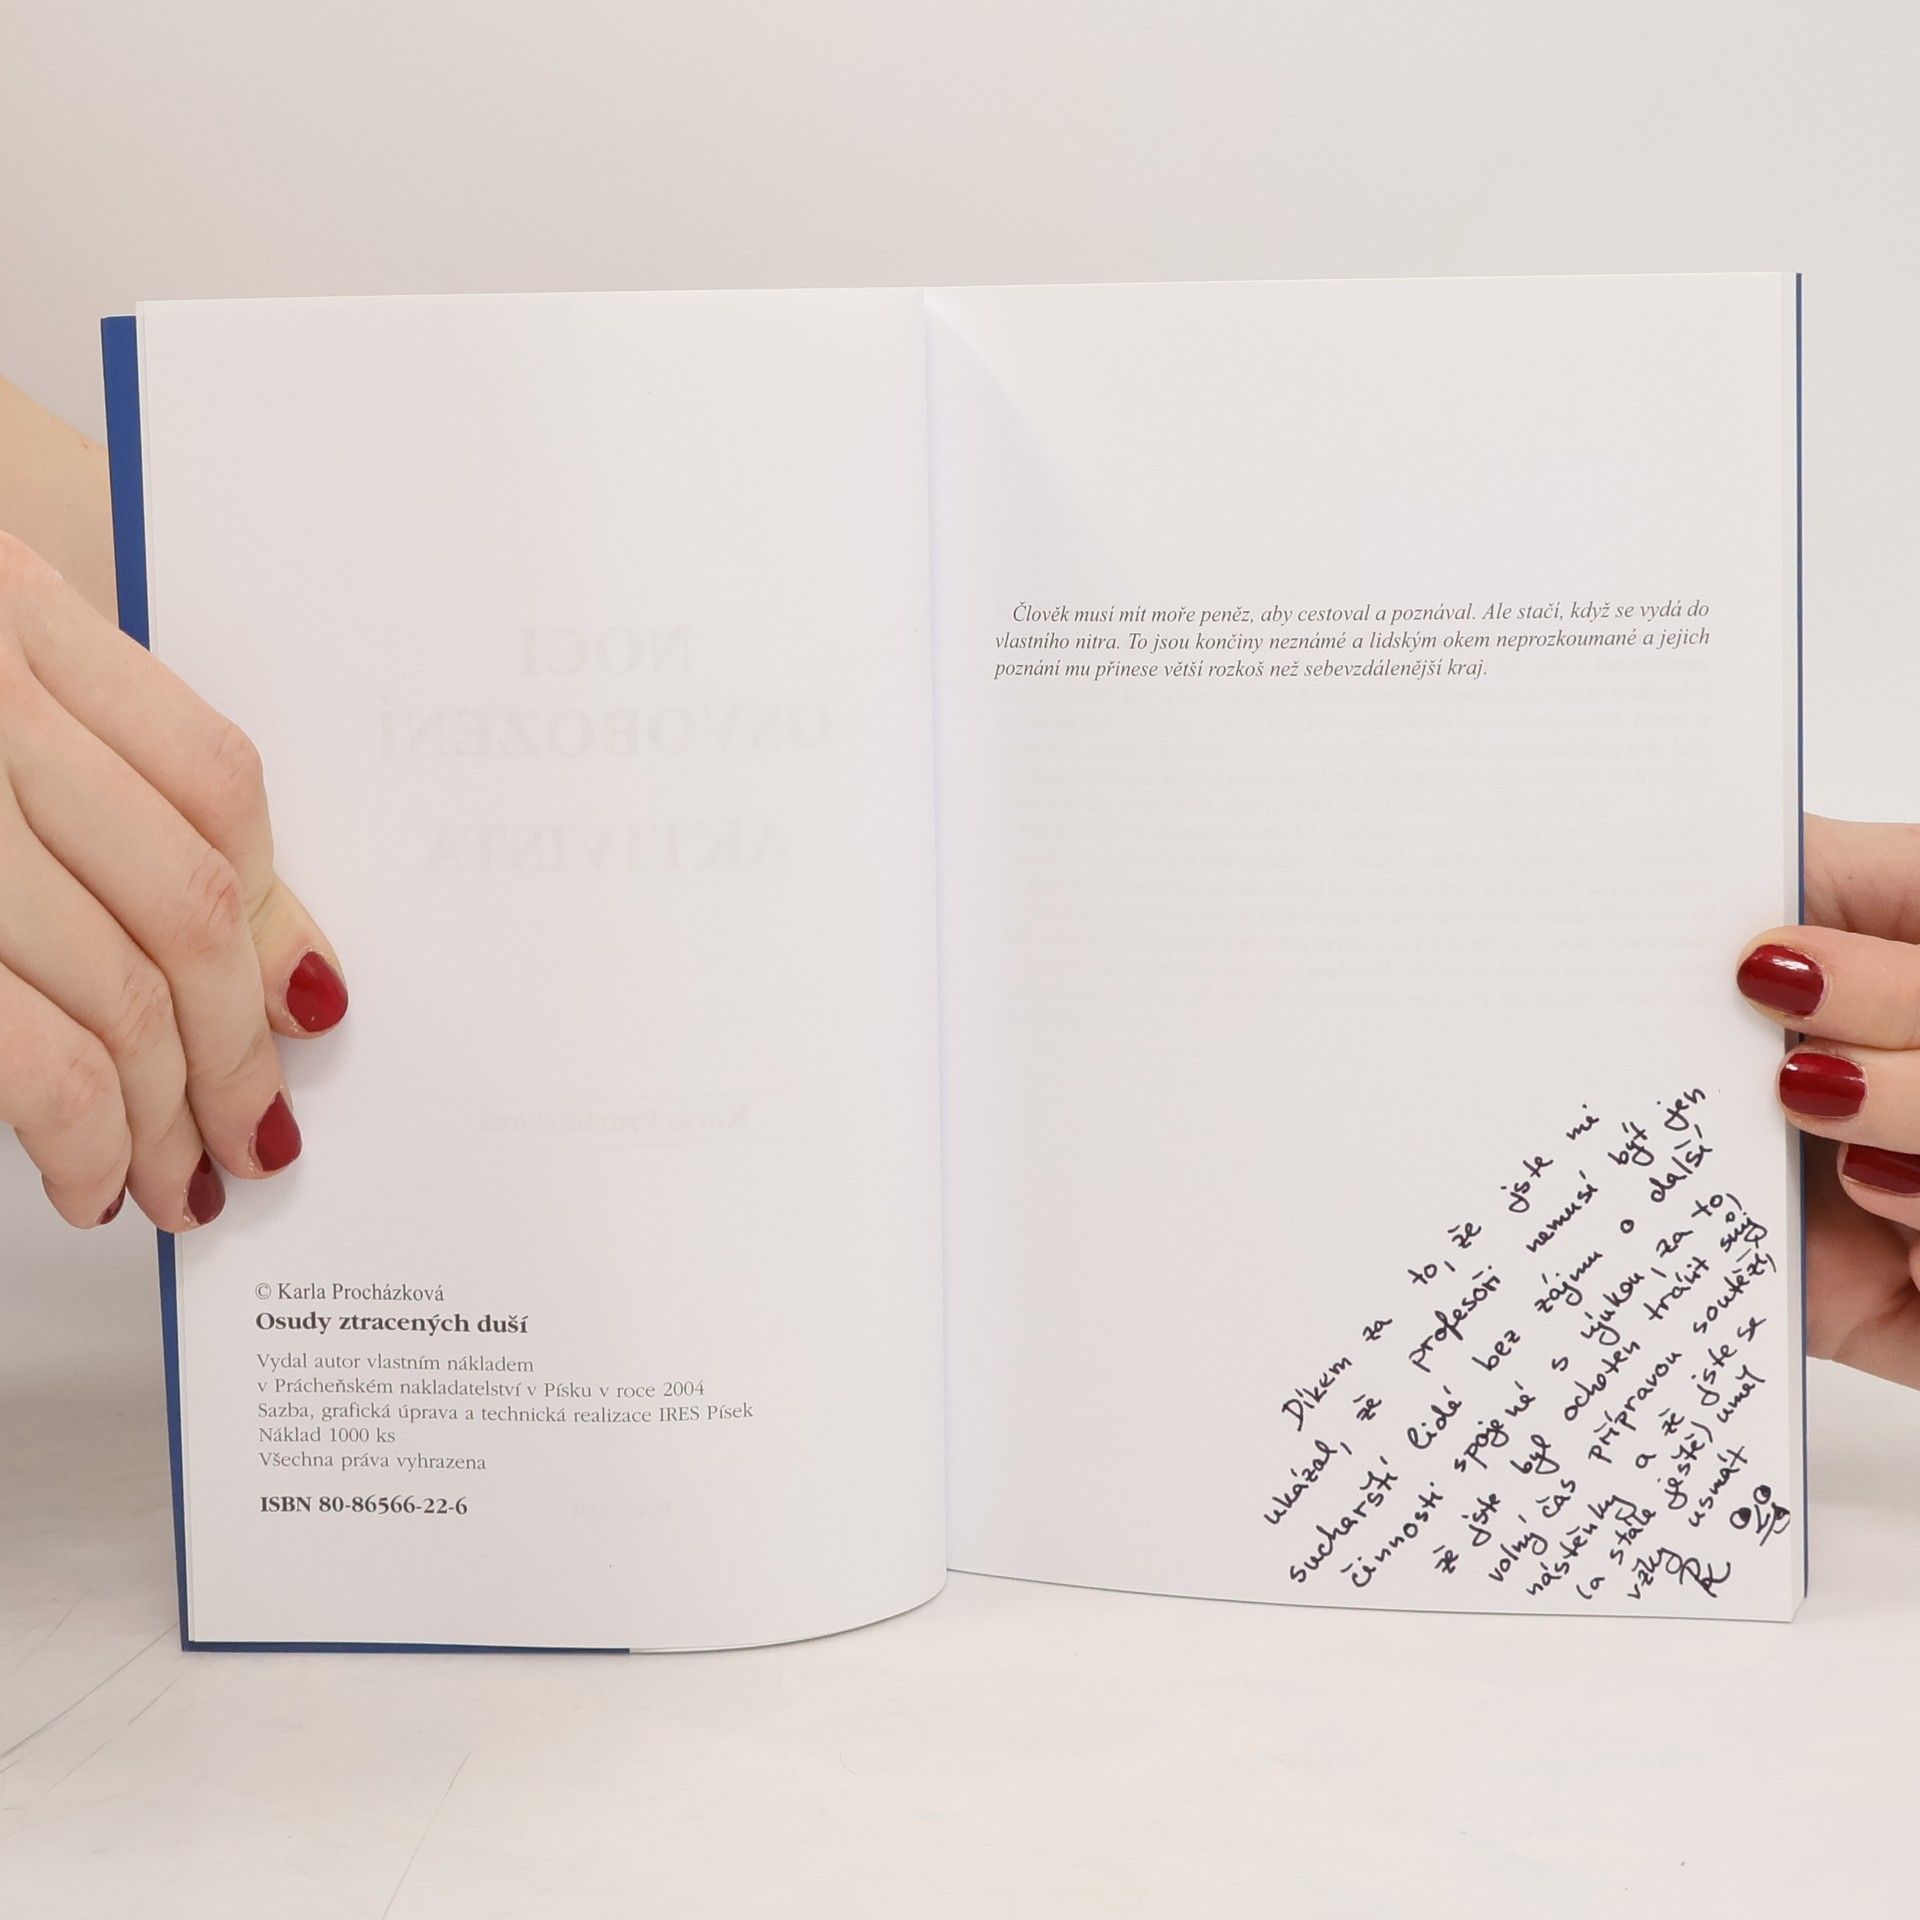 © Karla Procházková
Osudy ztracených duší
Vydal autor vlastním nákladem
v Prácheňském nakladatelství v Písku v roce 2004
Sazba, grafická úprava a technická realizace IRES Písek
Náklad 1000 ks
Všechna práva vyhrazena
ISBN 80-86566-22-6
NOCI
OSVOBOZENÍ
AKTIVISTA
Karla Procházková
Člověk musí mít moře peněz, aby cestoval a poznával. Ale stačí, když se vydá do
vlastního nitra. To jsou končiny neznámé a lidským okem neprozkoumané a jejich
poznání mu přinese větší rozkoš než sebevzdálenější kraj.
Díkem za to, že jste mi
ukázal, že profesoři nemusí být jen
sucharští lidé bez zájmu o další
činnosti spojené s výukou, za to,
že jste byl ochoten trávit svůj
volný čas přípravou soutěží,
nástěnky a že jste se
(a stále ještě) uměl
vždy usmát